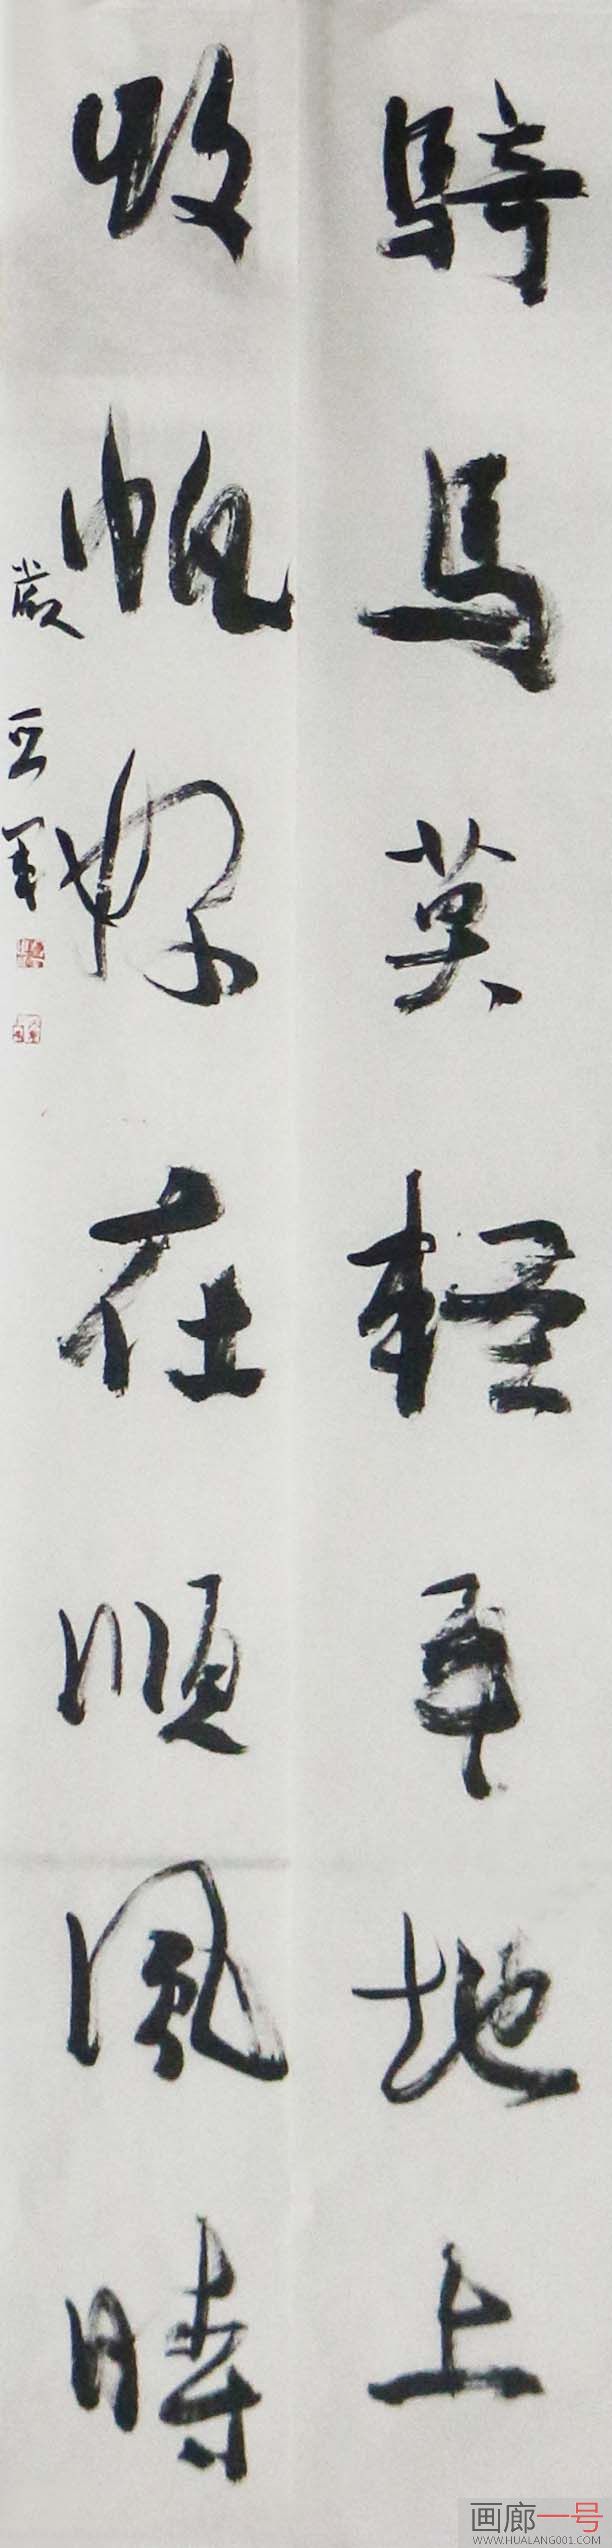 騎馬莫輕平地上
收帆好在順風時
嚴亞軍
画廊一号
WWW.HUALANG001.COM